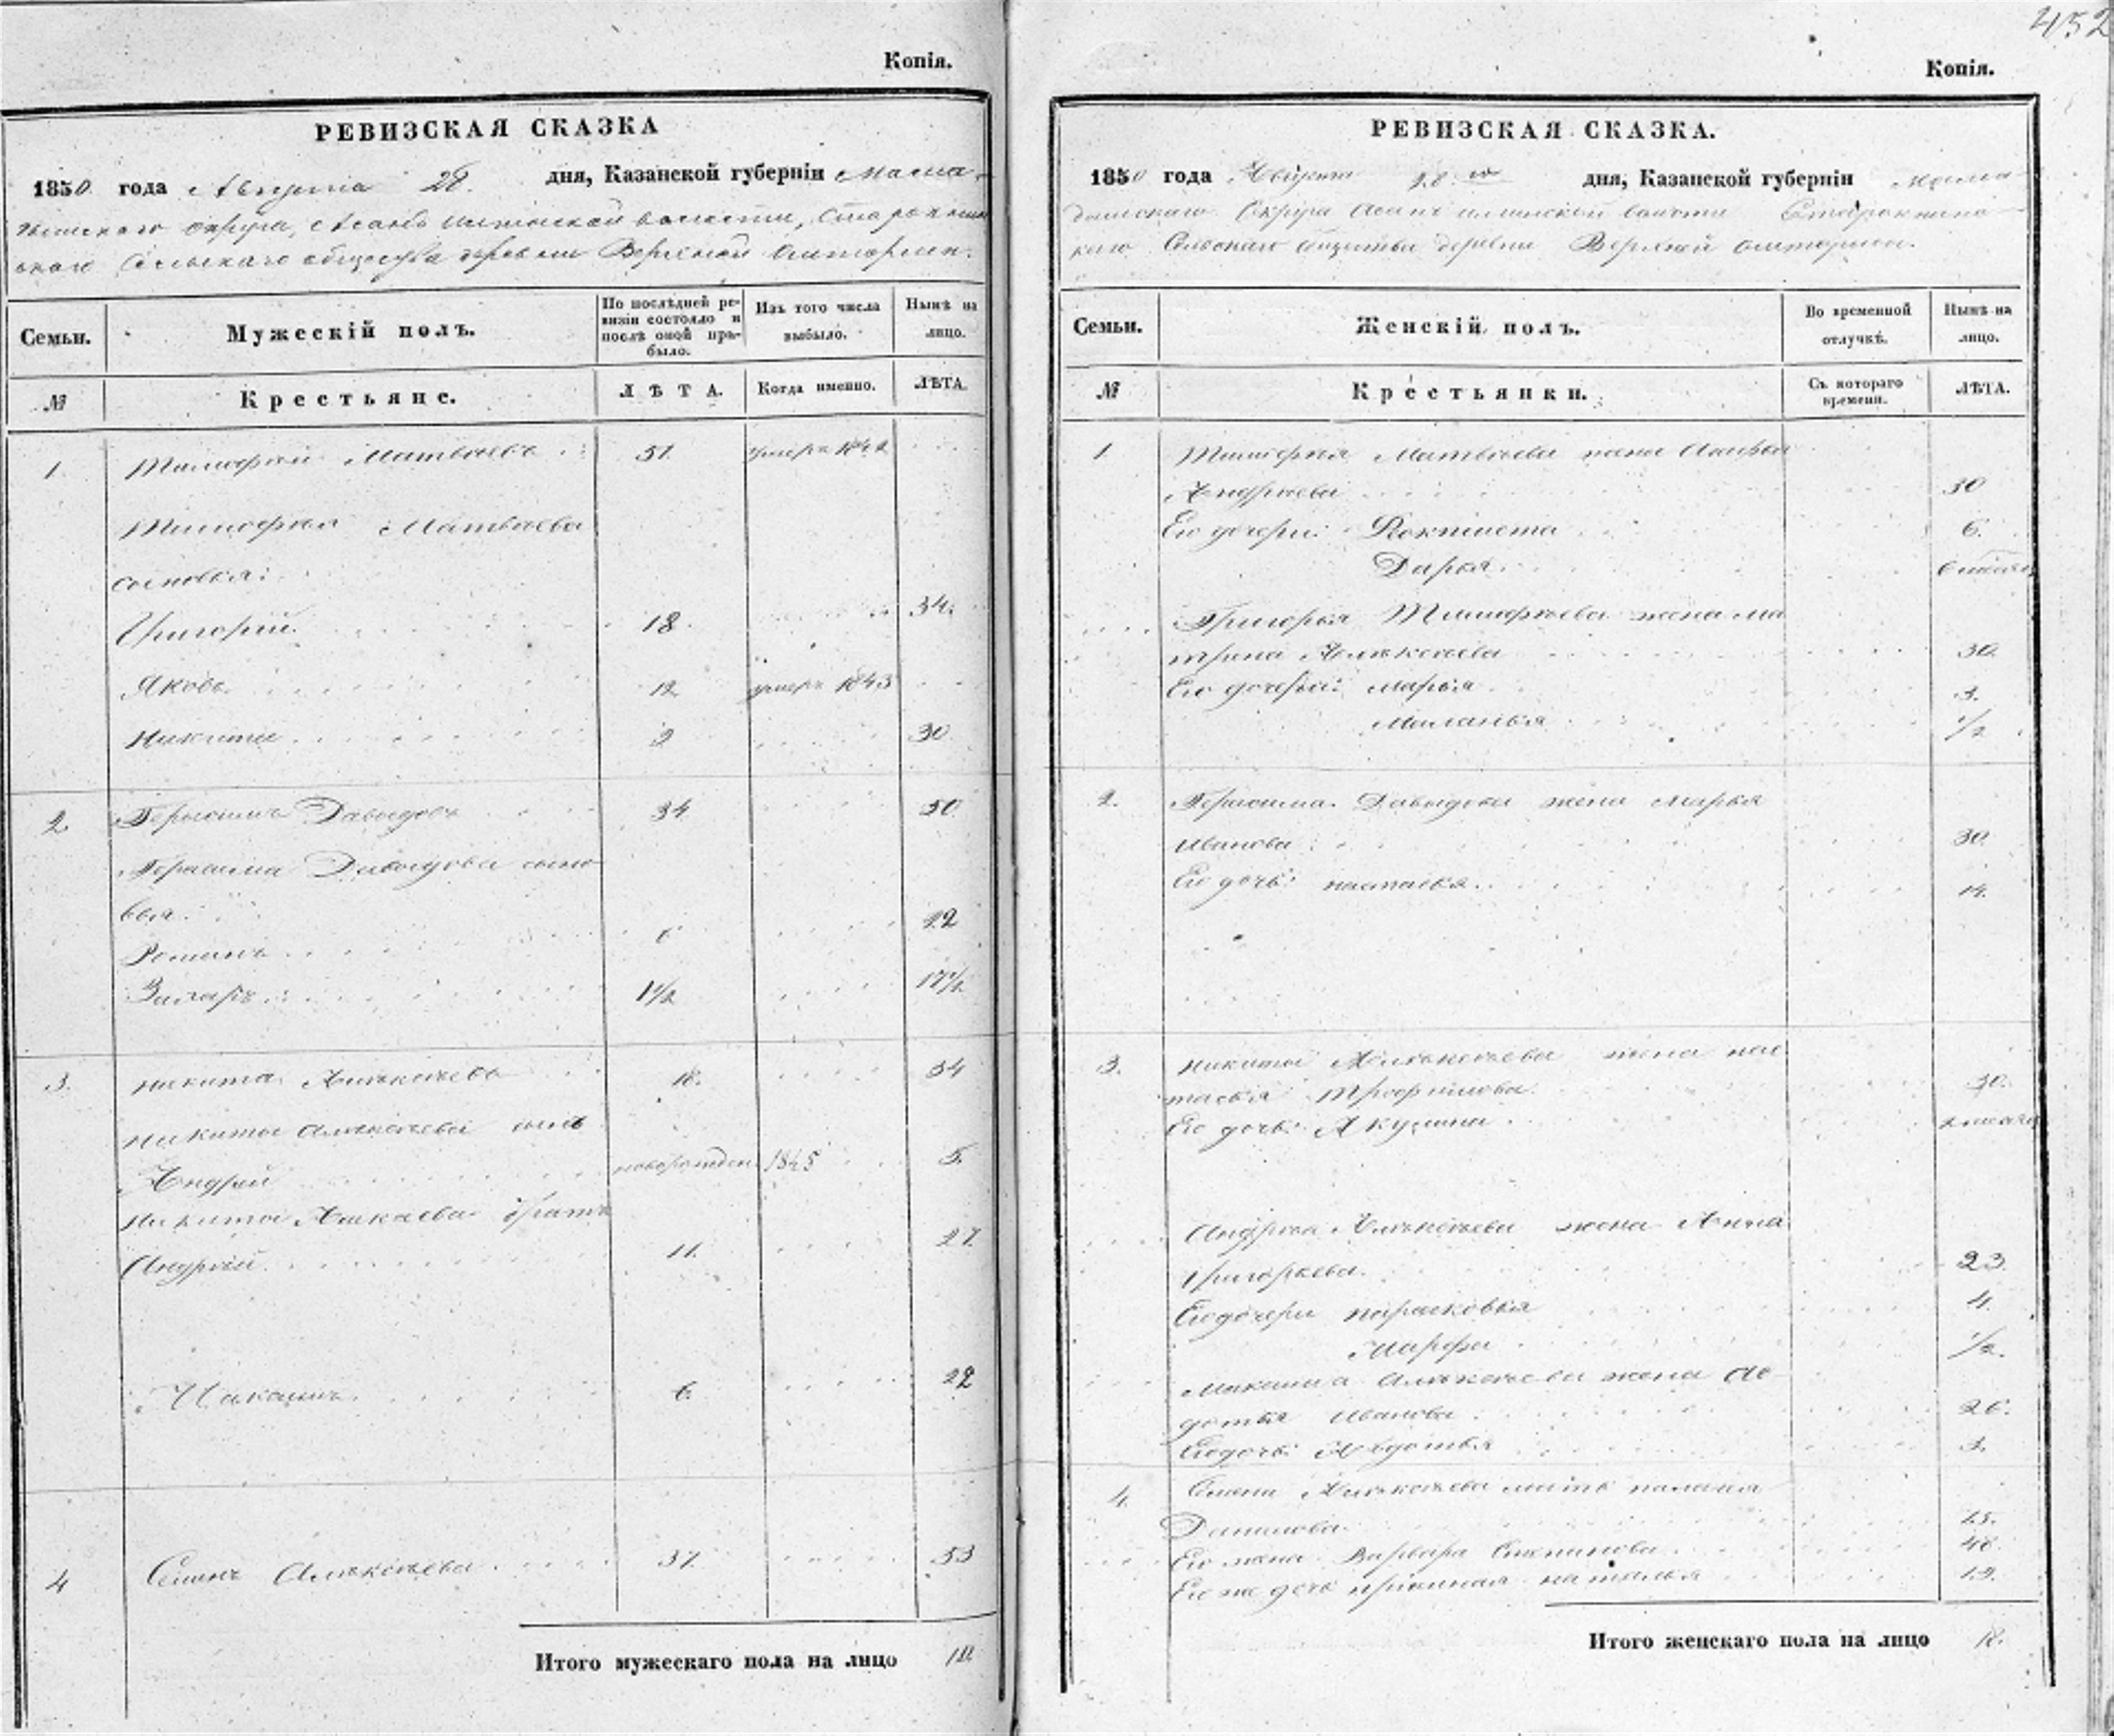 452
Копія.
РЕВИЗСКАЯ СКАЗКА
1850 года Августа 28 дня, Казанской губерніи Мама-
дышскаго округа, волости, Старо
скаго Сельскаго общества деревни Верхней
Семьи. Мужескій полъ. По послѣдней ре-визіи состояло и послѣ оной при-было. Изъ того числа выбыло. Нынѣ на лицо.
№ Крестьяне. ЛѢТА. Когда именно. ЛѢТА.
1. Тимофей Матвѣевъ 51. умеръ 184
Тимофея Матвѣева
сыновья:
Григорій 18. 34.
Яковъ 12 умеръ 1843
Никита 30
2. Герасимъ Давыдовъ 34 50
Герасима Давыдова сыно
вья.
Романъ 6 22
Захаръ 1 1/2 17 1/2
3. Никита Алексѣевъ 18. 34
Никиты Алексѣева сынъ
Андрей новорожден 1845 5.
Никиты братъ
Андрей 11. 27.
Максимъ 6. 22
4 Семенъ Алексѣева 37. 53
Итого мужескаго пола на лицо 10
Копія.
РЕВИЗСКАЯ СКАЗКА.
1850 года Августа 28 го дня, Казанской губерніи Мама
дышскаго Округа волости
Сельскаго общества деревни Верхней
Семьи. Женскій полъ. Во временной отлучкѣ. Нынѣ на лицо.
№ Крестьянки. Съ котораго времени. ЛѢТА.
1. Тимофея Матвѣева жена
Андреева 30
Его дочери: 6.
Дарья
Григорья Тимофеева жена Ма
трена Алексѣева 30.
Его дочери: Марья 3.
Маланья 1/2
2. Герасима Давыдова жена Марья
Иванова 30.
Его дочь: Настасья 14.
3. Никиты Алексѣева жена Нас
тасья Трофимова 30.
Его дочь: Акулина
Андрея Алексѣева жена Анна
Григорьева. 23.
Его дочери Парасковья 4
Марфа 1/2.
Максима Алексѣева жена Ав
дотья Иванова 26.
Его дочь: Авдотья 3.
4. Семена Алексѣева мать
Данилова
Его жена Варвара Степанова 48.
Его же дочь Наталья 19.
Итого женскаго пола на лицо 18.